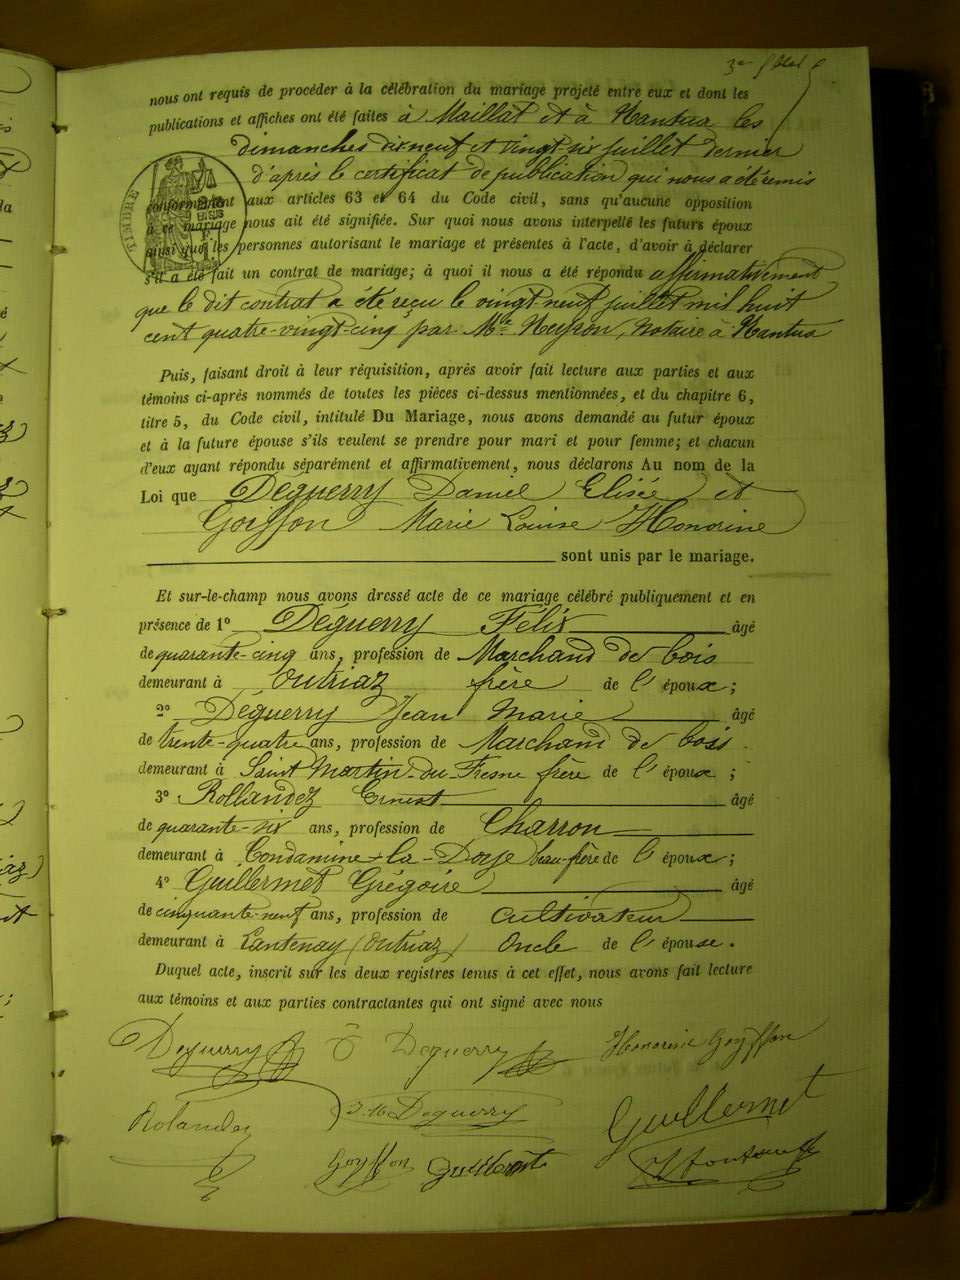 3e
nous ont requis de procéder à la célébration du mariage projeté entre eux et dont les
publications et affiches ont été faites à Maillat et à Nantua les
dimanches dix neuf et vingt six juillet dernier
d'après le certificat de publication qui nous a été remis
conformément aux articles 63 et 64 du Code civil, sans qu'aucune opposition
à ce mariage nous ait été signifiée. Sur quoi nous avons interpellé les futurs époux
ainsi que les personnes autorisant le mariage et présentes à l'acte, d'avoir à déclarer
s'il a été fait un contrat de mariage; à quoi il nous a été répondu affirmativement
que le dit contrat a été reçu le vingt neuf juillet mil huit
cent quatre-vingt-cinq par Me Neyron, Notaire à Nantua
TIMBRE
Puis, faisant droit à leur réquisition, après avoir fait lecture aux parties et aux
témoins ci-après nommés de toutes les pièces ci-dessus mentionnées, et du chapitre 6,
titre 5, du Code civil, intitulé Du Mariage, nous avons demandé au futur époux
et à la future épouse s'ils veulent se prendre pour mari et pour femme; et chacun
d'eux ayant répondu séparément et affirmativement, nous déclarons Au nom de la
Loi que Déguerry Daniel Elisée et
Goiffon Marie Louise Honorine
sont unis par le mariage.
Et sur-le-champ nous avons dressé acte de ce mariage célébré publiquement et en
présence de 1º Déguerry Félix âgé
de quarante-cinq ans, profession de Marchand de bois
demeurant à Outriaz frère de l'époux;
2º Déguerry Jean Marie âgé
de trente-quatre ans, profession de Marchand de bois
demeurant à Saint Martin-du-Fresne frère de l'époux;
3º Rollandez Ernest âgé
de quarante-six ans, profession de Charron
demeurant à Condamine-la-Doye beau-frère de l'époux;
4º Guillermet Grégoire âgé
de cinquante-neuf ans, profession de cultivateur
demeurant à Lantenay (Outriaz) Oncle de l'épouse.
Duquel acte, inscrit sur les deux registres tenus à cet effet, nous avons fait lecture
aux témoins et aux parties contractantes qui ont signé avec nous
Deguerry Deguerry Honorine Goyffon
Rolandez J. M. Deguerry Guillermet
Goyffon